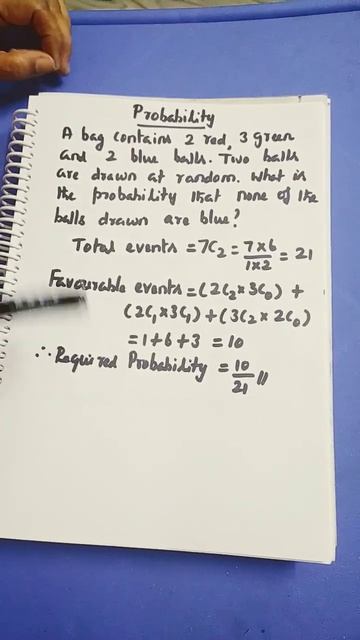 Probability
A bag contains 2 red, 3 green
and 2 blue balls. Two balls
are drawn at random. What is
the probability that none of the
balls drawn are blue?
Total events = 7C₂ = 7×6/1×2 = 21
Favourable events = (2C₂ × 3C₀) +
(2C₁ × 3C₁) + (3C₂ × 2C₀)
= 1+6+3 = 10
∴ Required Probability = 10/21 //